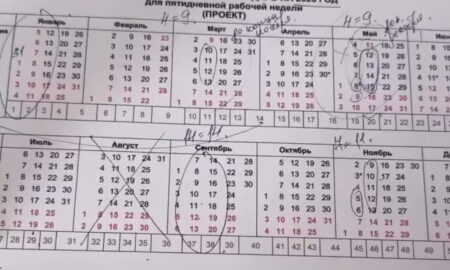 для пятидневной рабочей недели
(ПРОЕКТ)
Ч = 9.
Ч = 9.
Январь Февраль Март Апрель Май
5 12 19 26 2 9 16 23 2 9 16 23 30 6 13 20 27 4 11 18 25
6 13 20 27 3 10 17 24 3 10 17 24 31 7 14 21 28 5 12 19 26
7 14 21 28 4 11 18 25 4 11 18 25 1 8 15 22 29 6 13 20 27
1 8 15 22 29 5 12 19 26 5 12 19 26 2 9 16 23 30* 7 14 21 28
2 9 16 23 30 6 13 20 27 6 13 20 27 3 10 17 24 8 15 22 29
3 10 17 24 31 7 14 21 28 7 14 21 28 4 11 18 25 2 9 16 23 30
4 11 18 25 1 8 15 22 1 8 15 22 29 5 12 19 26 3 10 17 24 31
1 2 3 4 5 6 7 8 9 10 11 12 13 14 15 16 17 18 19 20 21 22
Июль Август Сентябрь Октябрь Ноябрь
6 13 20 27 3 10 17 24 31 7 14 21 28 5 12 19 26 2 9 16 23 30
7 14 21 28 4 11 18 25 1 8 15 22 29 6 13 20 27 3* 10 17 24
1 8 15 22 29 5 12 19 26 2 9 16 23 30 7 14 21 28 4 11 18 25
2 9 16 23 30 6 13 20 27 3 10 17 24 1 8 15 22 29 5 12 19 26
3 10 17 24 31 7 14 21 28 4 11 18 25 2 9 16 23 30 6 13 20 27
4 11 18 25 1 8 15 22 29 5 12 19 26 3 10 17 24 31 7 14 21 28
5 12 19 26 2 9 16 23 30 6 13 20 27 4 11 18 25 1 8 15 22 29
27 28 29 30 31 32 33 34 35 36 37 38 39 40 41 42 43 44 45 46 47 48 49